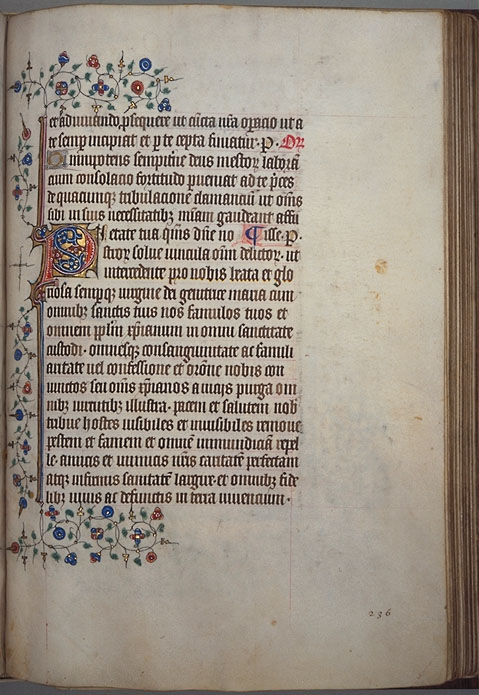 et adiuuando, psequere ut cūcta nr̄a oꝑacio et a
te semp incipiat et p te cepta finiatur · P · Or
Omnipotens sempit̄ne deus mestoꝝ
cium consolacio fortitudo pueniat ad te p̄ces
de quacumqꝫ tribulacione clamanciū ut om̄s
sibi in suis necessitatibꝫ mīam gaudeant affu
isse · P · etate tua qm̄s dn̄e no
stroꝝ solue uincula om̄ delictoꝝ · ut
intercedente pro nobis beata et glo
riosa sempqꝫ uirgine dei genitrice maria cum
omnibꝫ sanctis tuis nos famulos tuos et
omnem pplm̄ xp̄ianum in omni sanctitate
custodi · omnesqꝫ consanguinitate ac famili
aritate uel confessione et or̄one nobis con
iunctos seu om̄s xp̄ianos a uicijs purga om
nibꝫ uirtutibꝫ illustra · pacem et salutem nob̄
tribue hostes uisibiles et inuisibiles remoue
pestem et famem et omnē inmundiciā repel
le · amicis et inimicis nr̄is caritatē perfectam
atqꝫ infirmis sanitatē largire et omnibꝫ fide
libꝫ uiuis ac defunctis in terra uiuencium ·
236